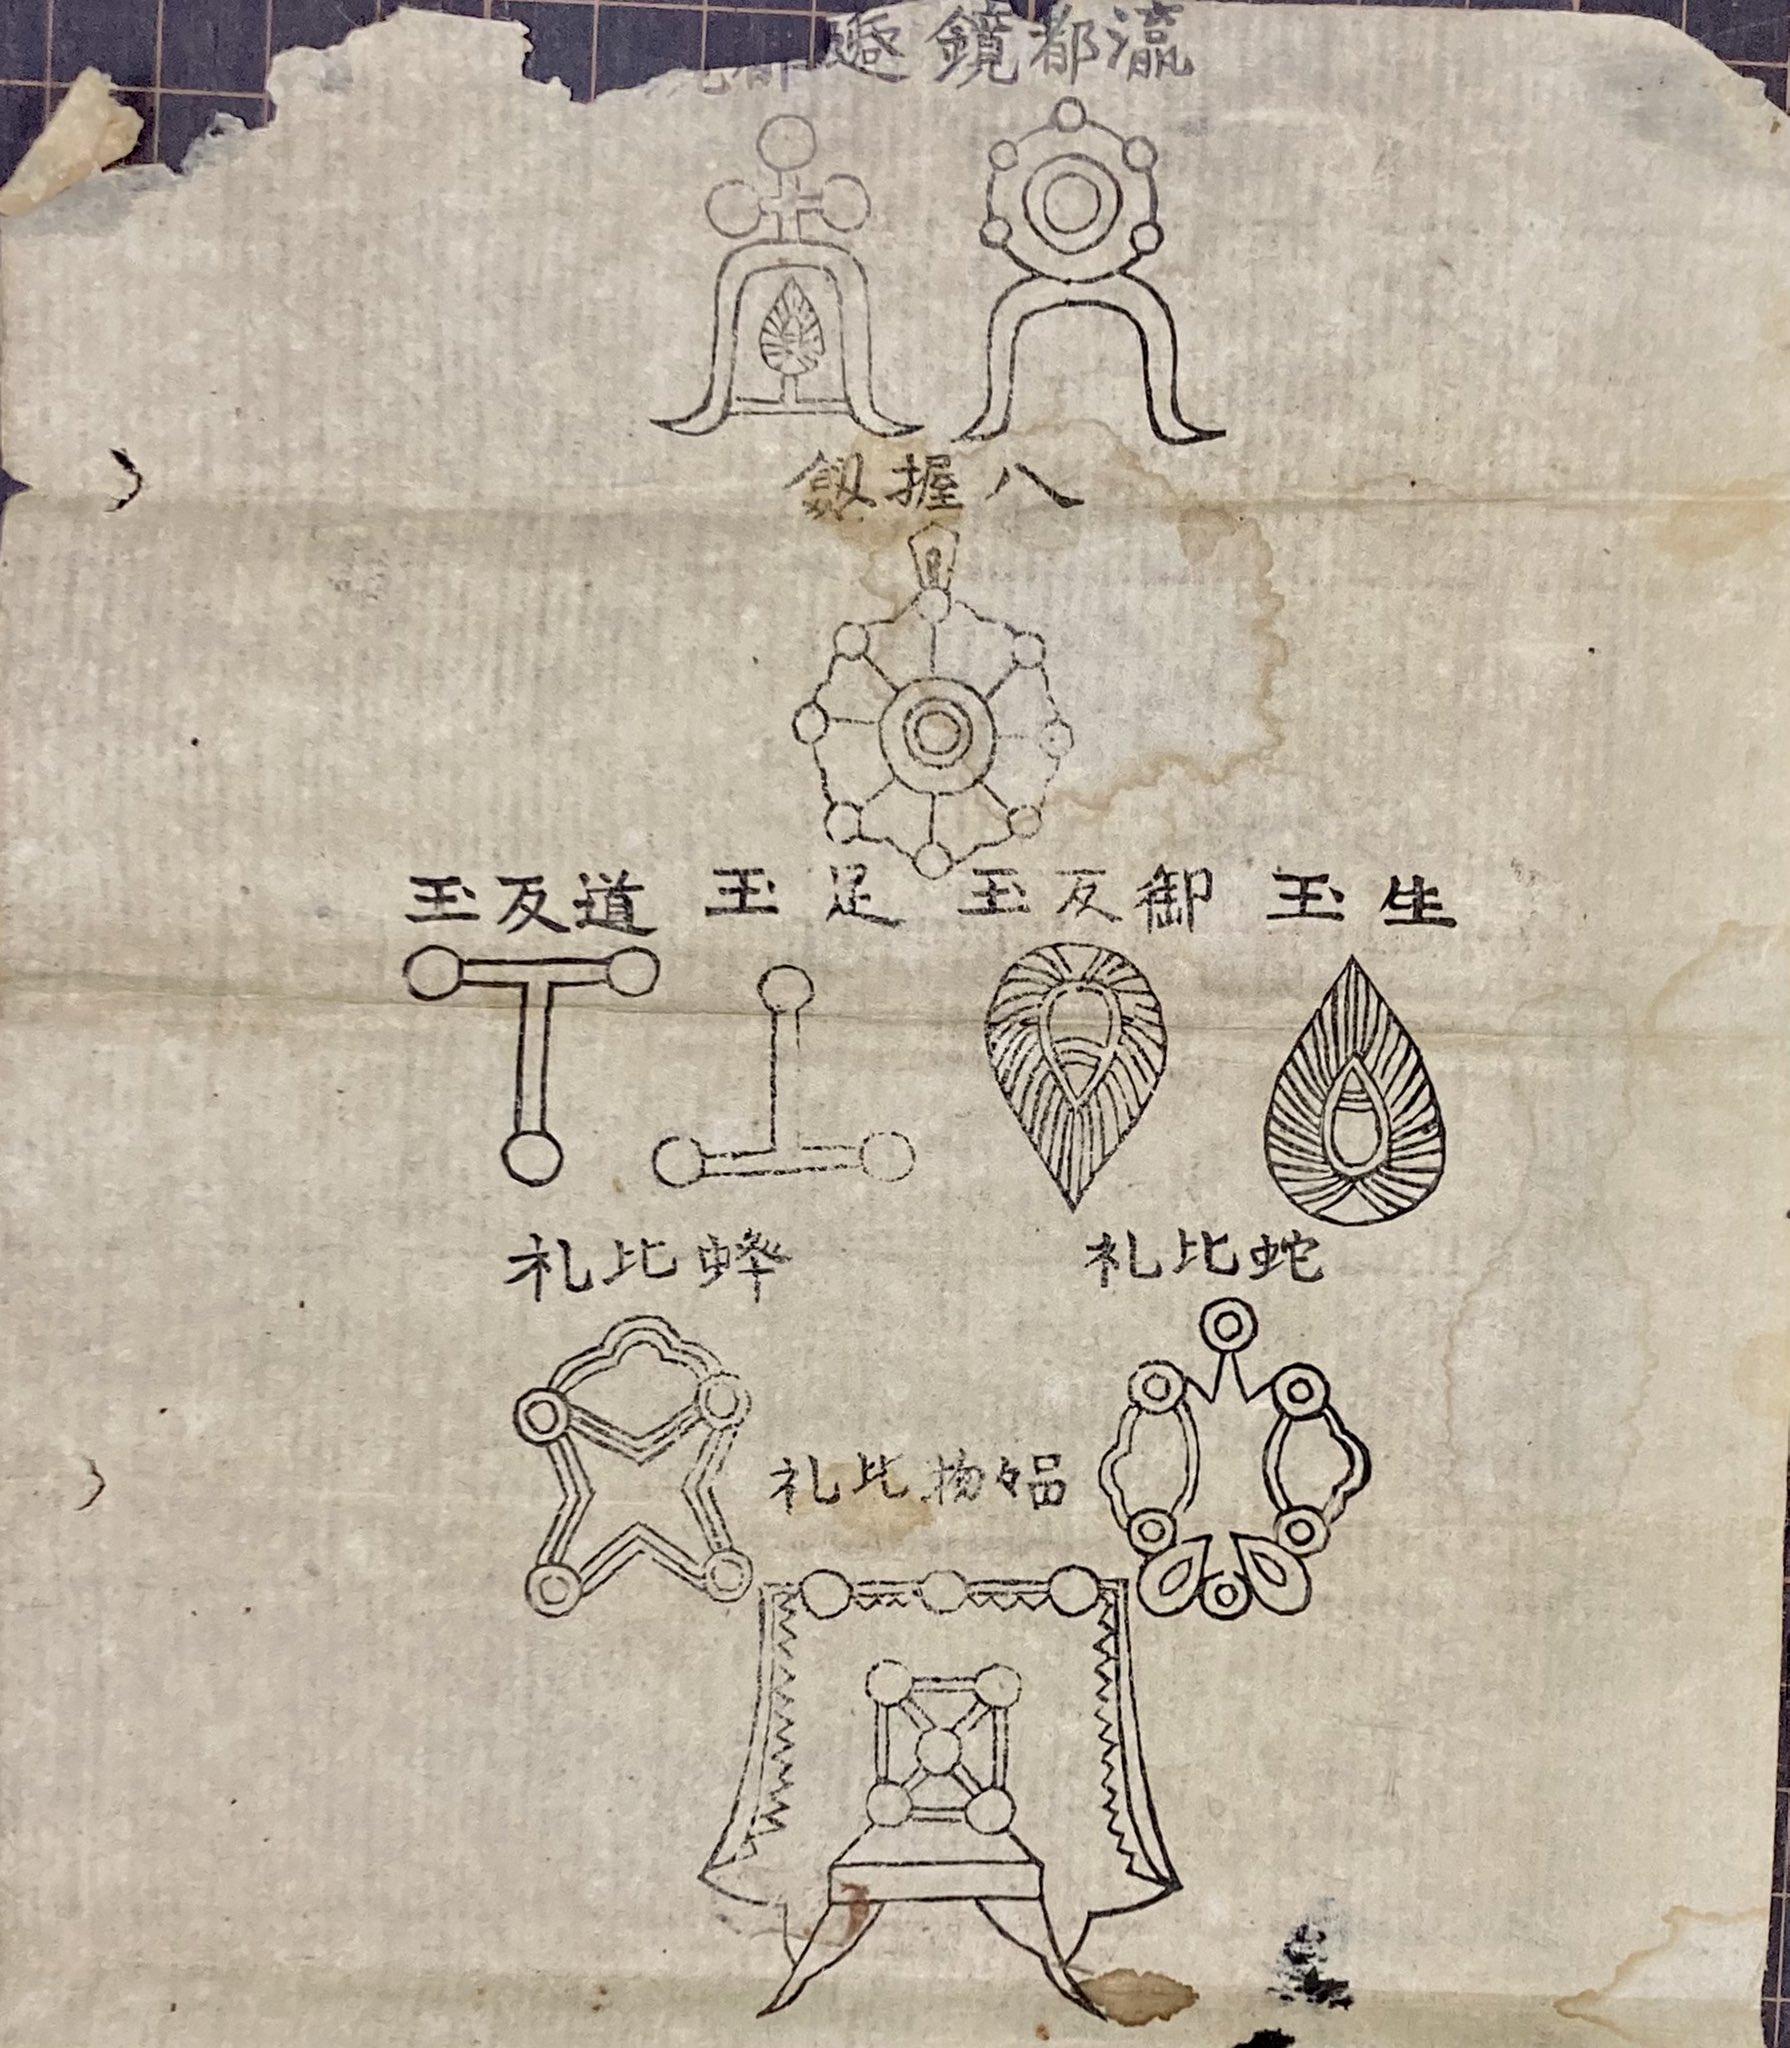 瀛都鏡
八握劔
生玉
御反玉
足玉
道反玉
蛇比礼
蜂比礼
品々物比礼